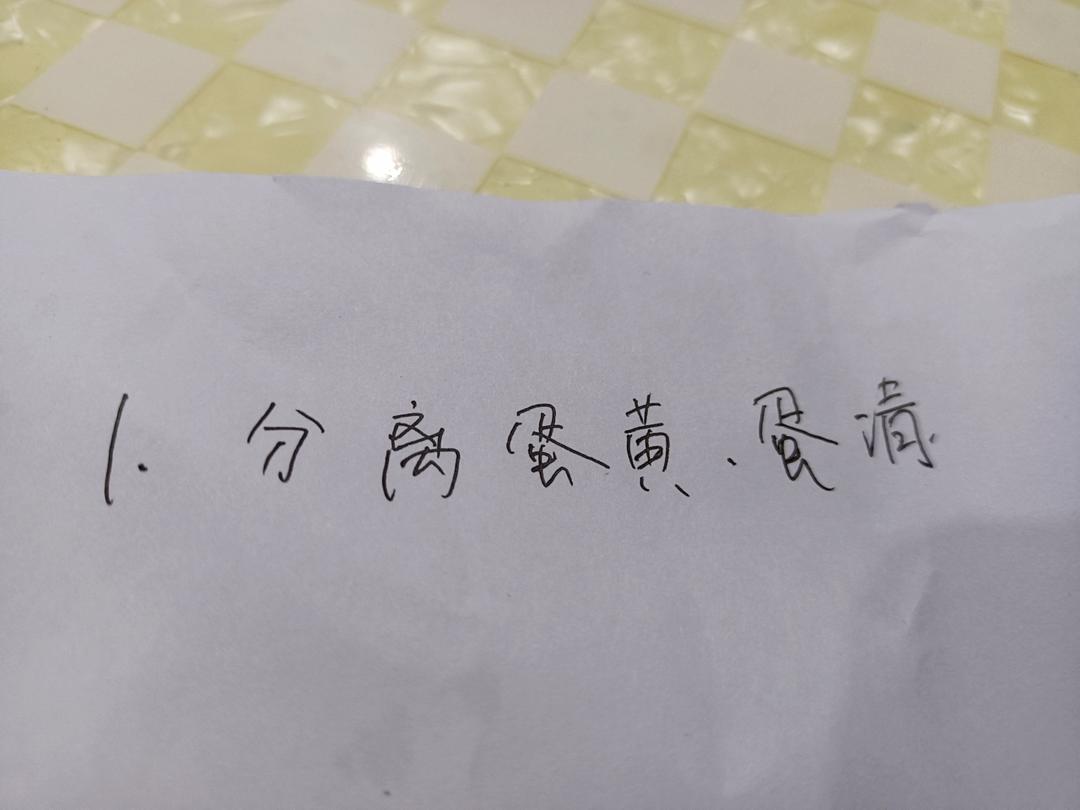 1. 分离蛋黄、蛋清